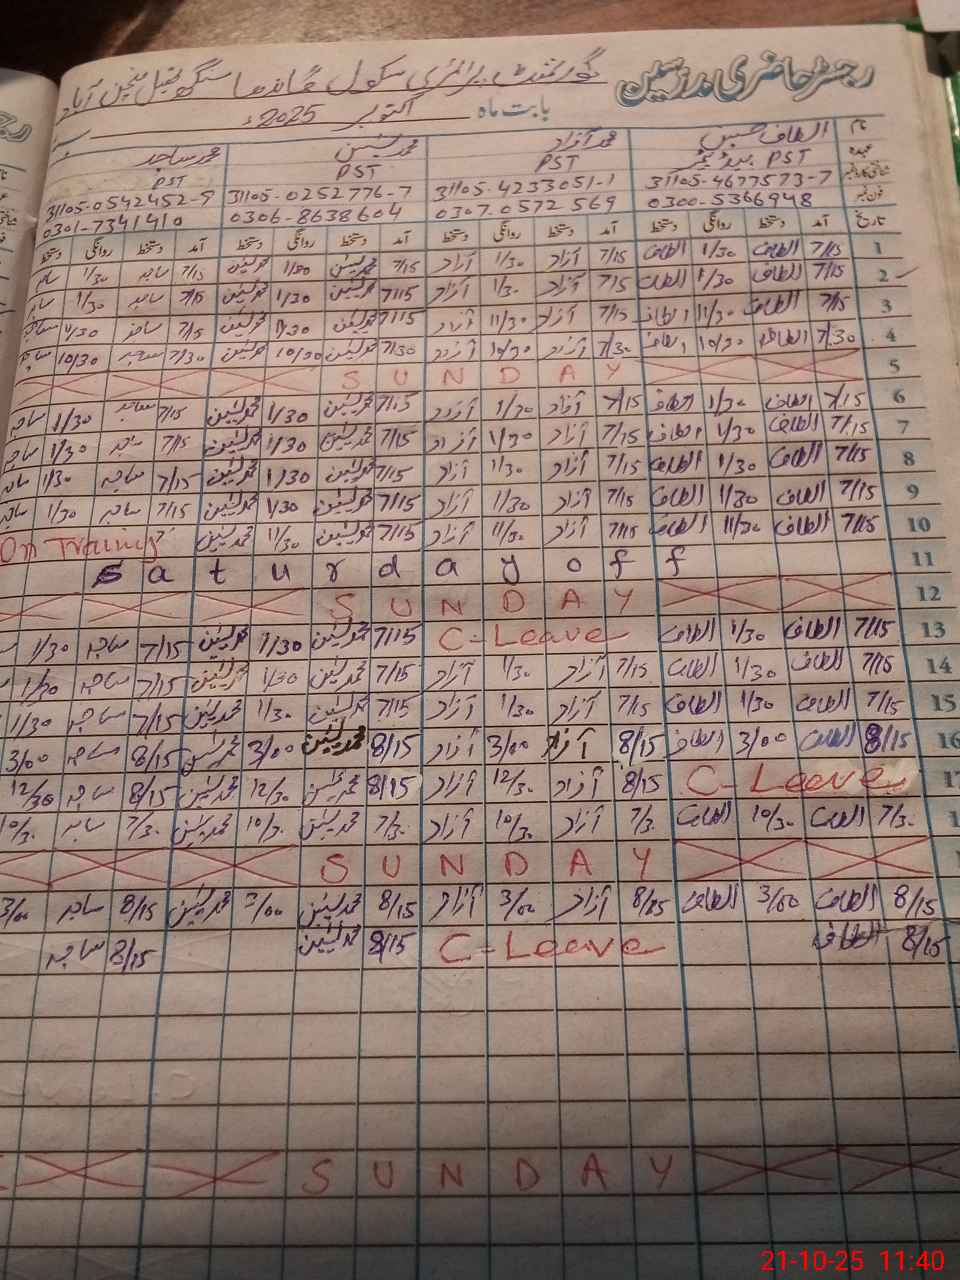 رجسٹر حاضری مدرسین گورنمنٹ پرائمری سکول
بابت ماہ اکتوبر 2025ء
نام الطاف حسین محمد آزاد محمد یٰسین محمد ساجد
عہدہ PST ہیڈ ٹیچر PST PST PST
31105-4677573-7 31105-4233051-1 31105-0252776-7 31105-0542452-5
فون نمبر 0300-5366948 0307-0572569 0306-8638604 0301-7341410
تاریخ آمد دستخط روانگی دستخط آمد دستخط روانگی دستخط آمد دستخط روانگی دستخط آمد دستخط روانگی دستخط
1 7/15 الطاف 1/30 الطاف 7/15 آزاد 1/30 آزاد 7/15 محمد یٰسین 1/30 محمد یٰسین 7/15 ساجد 1/30 ساجد
2 7/15 الطاف 1/30 الطاف 7/15 آزاد 1/30 آزاد 7/15 محمد یٰسین 1/30 محمد یٰسین 7/15 ساجد 1/30 ساجد
3 7/15 الطاف 11/30 الطاف 7/15 آزاد 11/30 آزاد 7/15 محمد یٰسین 11/30 محمد یٰسین 7/15 ساجد 11/30 ساجد
4 7/30 الطاف 10/30 الطاف 7/30 آزاد 10/30 آزاد 7/30 محمد یٰسین 10/30 محمد یٰسین 7/30 ساجد 10/30 ساجد
5 SUNDAY
6 7/15 الطاف 1/30 الطاف 7/15 آزاد 1/30 آزاد 7/15 محمد یٰسین 1/30 محمد یٰسین 7/15 ساجد 1/30 ساجد
7 7/15 الطاف 1/30 الطاف 7/15 آزاد 1/30 آزاد 7/15 محمد یٰسین 1/30 محمد یٰسین 7/15 ساجد 1/30 ساجد
8 7/15 الطاف 1/30 الطاف 7/15 آزاد 1/30 آزاد 7/15 محمد یٰسین 1/30 محمد یٰسین 7/15 ساجد 1/30 ساجد
9 7/15 الطاف 1/30 الطاف 7/15 آزاد 1/30 آزاد 7/15 محمد یٰسین 1/30 محمد یٰسین 7/15 ساجد 1/30 ساجد
10 7/15 الطاف 11/30 الطاف 7/15 آزاد 11/30 آزاد 7/15 محمد یٰسین 11/30 محمد یٰسین On Training
11 Saturday off
12 SUNDAY
13 7/15 الطاف 1/30 الطاف C-Leave 7/15 محمد یٰسین 1/30 محمد یٰسین 7/15 ساجد 1/30
14 7/15 الطاف 1/30 الطاف 7/15 آزاد 1/30 آزاد 7/15 محمد یٰسین 1/30 محمد یٰسین 7/15 ساجد 1/30
15 7/15 الطاف 1/30 الطاف 7/15 آزاد 1/30 آزاد 7/15 محمد یٰسین 1/30 محمد یٰسین 7/15 ساجد 1/30
16 8/15 الطاف 3/00 الطاف 8/15 آزاد 3/00 آزاد 8/15 محمد یٰسین 3/00 محمد یٰسین 8/15 ساجد 3/00
C-Leave 8/15 آزاد 12/30 آزاد 8/15 محمد یٰسین 12/30 محمد یٰسین 8/15 ساجد 12/30
7/30 الطاف 10/30 الطاف 7/3 آزاد 10/30 آزاد 7/30 محمد یٰسین 10/30 محمد یٰسین 7/30 ساجد 10/30
SUNDAY
8/15 الطاف 3/00 الطاف 8/15 آزاد 3/00 آزاد 8/15 محمد یٰسین 3/00 محمد یٰسین 8/15 ساجد 3/00
8/15 الطاف C-Leave 8/15 محمد یٰسین 8/15 ساجد
SUNDAY
21-10-25 11:40